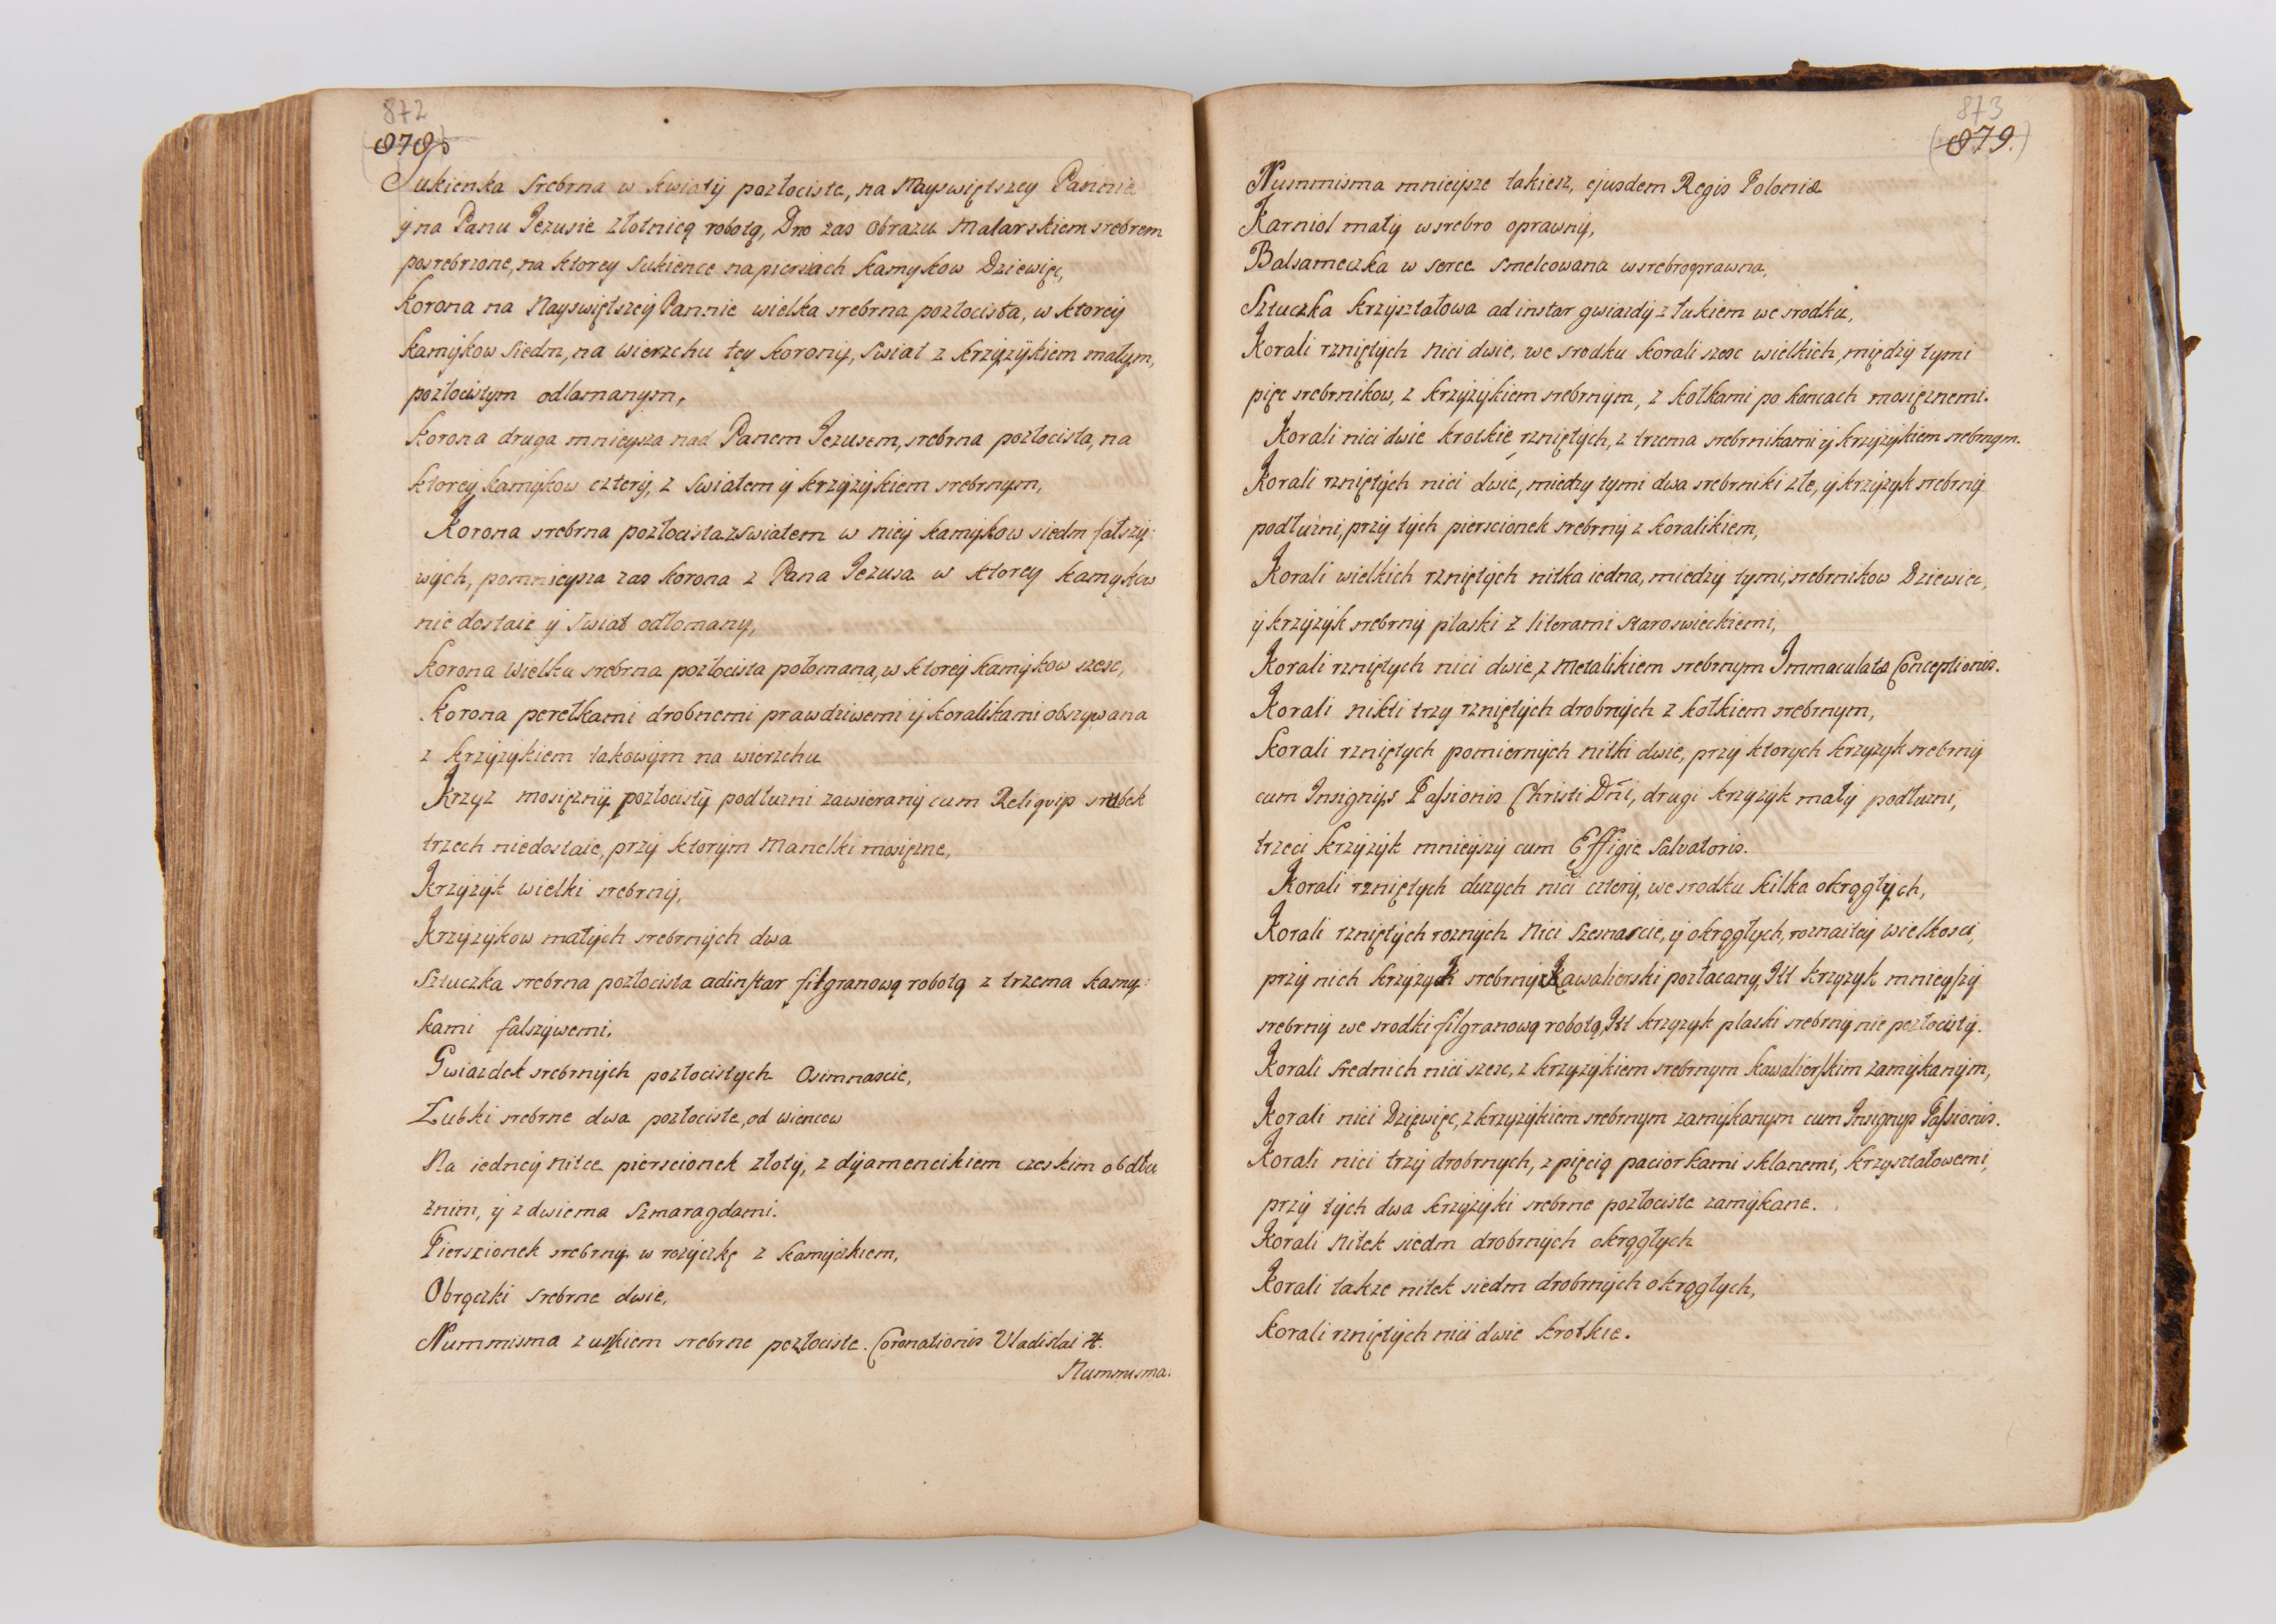 872
878
Sukienka srebrna w kwiaty pozłociste, na Nayswiętszey Pannie
y na Panu Jezusie złotniczą robotą, Dno zas obrazu Malarskiem srebrem
posrebrzone, na ktorey sukience na piersiach kamykow Dziewięc,
Korona na Nayswiętszeÿ Pannie wielka srebrna pozłocista, w ktoreÿ
kamÿkow siedm, na wierzchu tey koronÿ, swiat z krzÿzÿkiem małym,
pozłocistym odłamanym,
Korona druga mnieysza nad Panem Jezusem, srebrna pozłocista, na
ktoreÿ kamÿkow czterÿ, z swiatem ÿ krzÿzÿkiem srebrnym,
Korona srebrna pozłocista z swiatem w nieÿ kamÿkow siedm fałszÿ:
wÿch, pomnieysza zas korona z Pana Jezusa w ktorey kamykow
nie dostaie ÿ swiat odłomany,
Korona wielka srebrna pozłocista połomana, w ktoreÿ kamÿkow szesc,
Korona perełkami drobnemi prawdziwemi ÿ koralikami obszywana
z krzÿzÿkiem takowÿm na wierzchu
Krzyz mosięznÿ pozłocistÿ podłuzni zawieranÿ cum Reliquijs srubek
trzech niedostaie, przÿ ktorÿm Manelki mosięzne,
Krzÿzÿk wielki srebrnÿ,
Krzÿzÿkow małÿch srebrnÿch dwa
Sztuczka srebrna pozłocista ad instar filgranową robotą z trzema kamy:
kami falszÿwemi.
Gwiazdek srebrnÿch pozłocistÿch Osimnascie,
Ząbki srebrne dwa pozłociste, od wiencow
Na iedneÿ nitce piersionek złotÿ, z dÿamencikiem czeskim obdłu
znim, ÿ z dwiema Szmaragdami.
Pierscionek srebrnÿ w rozÿczkę z kamÿczkiem,
Obrączki srebrne dwie,
Nummisma z uszkiem srebrne pozłociste. Coronationis Vladislai 4t.
Nummisma.
873
879.
Nummisma mnieÿsze takiesz, ejusdem Regis Poloniæ
Karniol małÿ w srebro oprawnÿ,
Balsameczka w serce smelcowana w srebro oprawna,
Sztuczka krzÿształowa ad instar gwiazdÿ z łukiem we srodku,
Korali rzniętÿch nici dwie, we srodku korali szesc wielkich, międzÿ tymi
pięc srebrnikow, z krzÿzÿkiem srebrnÿm, z kołkami po koncach mosięznemi.
Korali nici dwie krotkie rzniętÿch, z trzema srebrnikami ÿ krzÿzÿkiem srebrnym.
Korali rzniętÿch nici dwie, miedzy tymi dwa srebrniki złe, ÿ krzÿzÿk srebrnÿ
podłuzni, przÿ tÿch pierscionek srebrnÿ z koralikiem,
Korali wielkich rzniętÿch nitka iedna, miedzÿ tymi, srebrnikow Dziewiec,
ÿ krzÿzÿk srebrnÿ płaski z literami staroswieckiemi,
Korali rzniętÿch nici dwie, z Metalikiem srebrnym Immaculatæ Conceptionis.
Korali nitki trzy rzniętÿch drobnÿch z kołkiem srebrnym,
Korali rzniętÿch pomiernÿch nitki dwie, przÿ ktorych krzyzyk srebrnÿ
cum Insignijs Passionis Christi Dñi, drugi krzyzyk małÿ podłuzni,
trzeci krzÿzÿk mnieÿszÿ cum Effigie Salvatoris.
Korali rzniętÿch duzych nici czterÿ, we srodku kilka okrągłych,
Korali rzniętÿch roznÿch Nici Szesnascie, ÿ okrągłych, roznaiteÿ wielkosci,
przÿ nich krzÿzyk srebrnÿ Kawalierski pozłacany, Itt krzyzyk mnieyszÿ
srebrnÿ we srodki filgranową robotą, Itt krzyzyk płaski srebrnÿ nie pozłocistÿ.
Korali srednich nici szesc, z krzÿzÿkiem srebrnym kawalierskim zamÿkanÿm,
Korali nici Dziewięc, z krzÿzÿkiem srebrnym zamÿkanym cum Insignijs Passionis.
Korali nici trzÿ drobnÿch, z pięcią paciorkami sklanemi, krzyształowemi,
przÿ tÿch dwa krzÿzÿki srebrne pozłociste zamÿkane.
Korali Nitek siedm drobnÿch okrągłych
Korali takze nitek siedm drobnÿch okrągłÿch,
Korali rzniętÿch nici dwie krotkie.